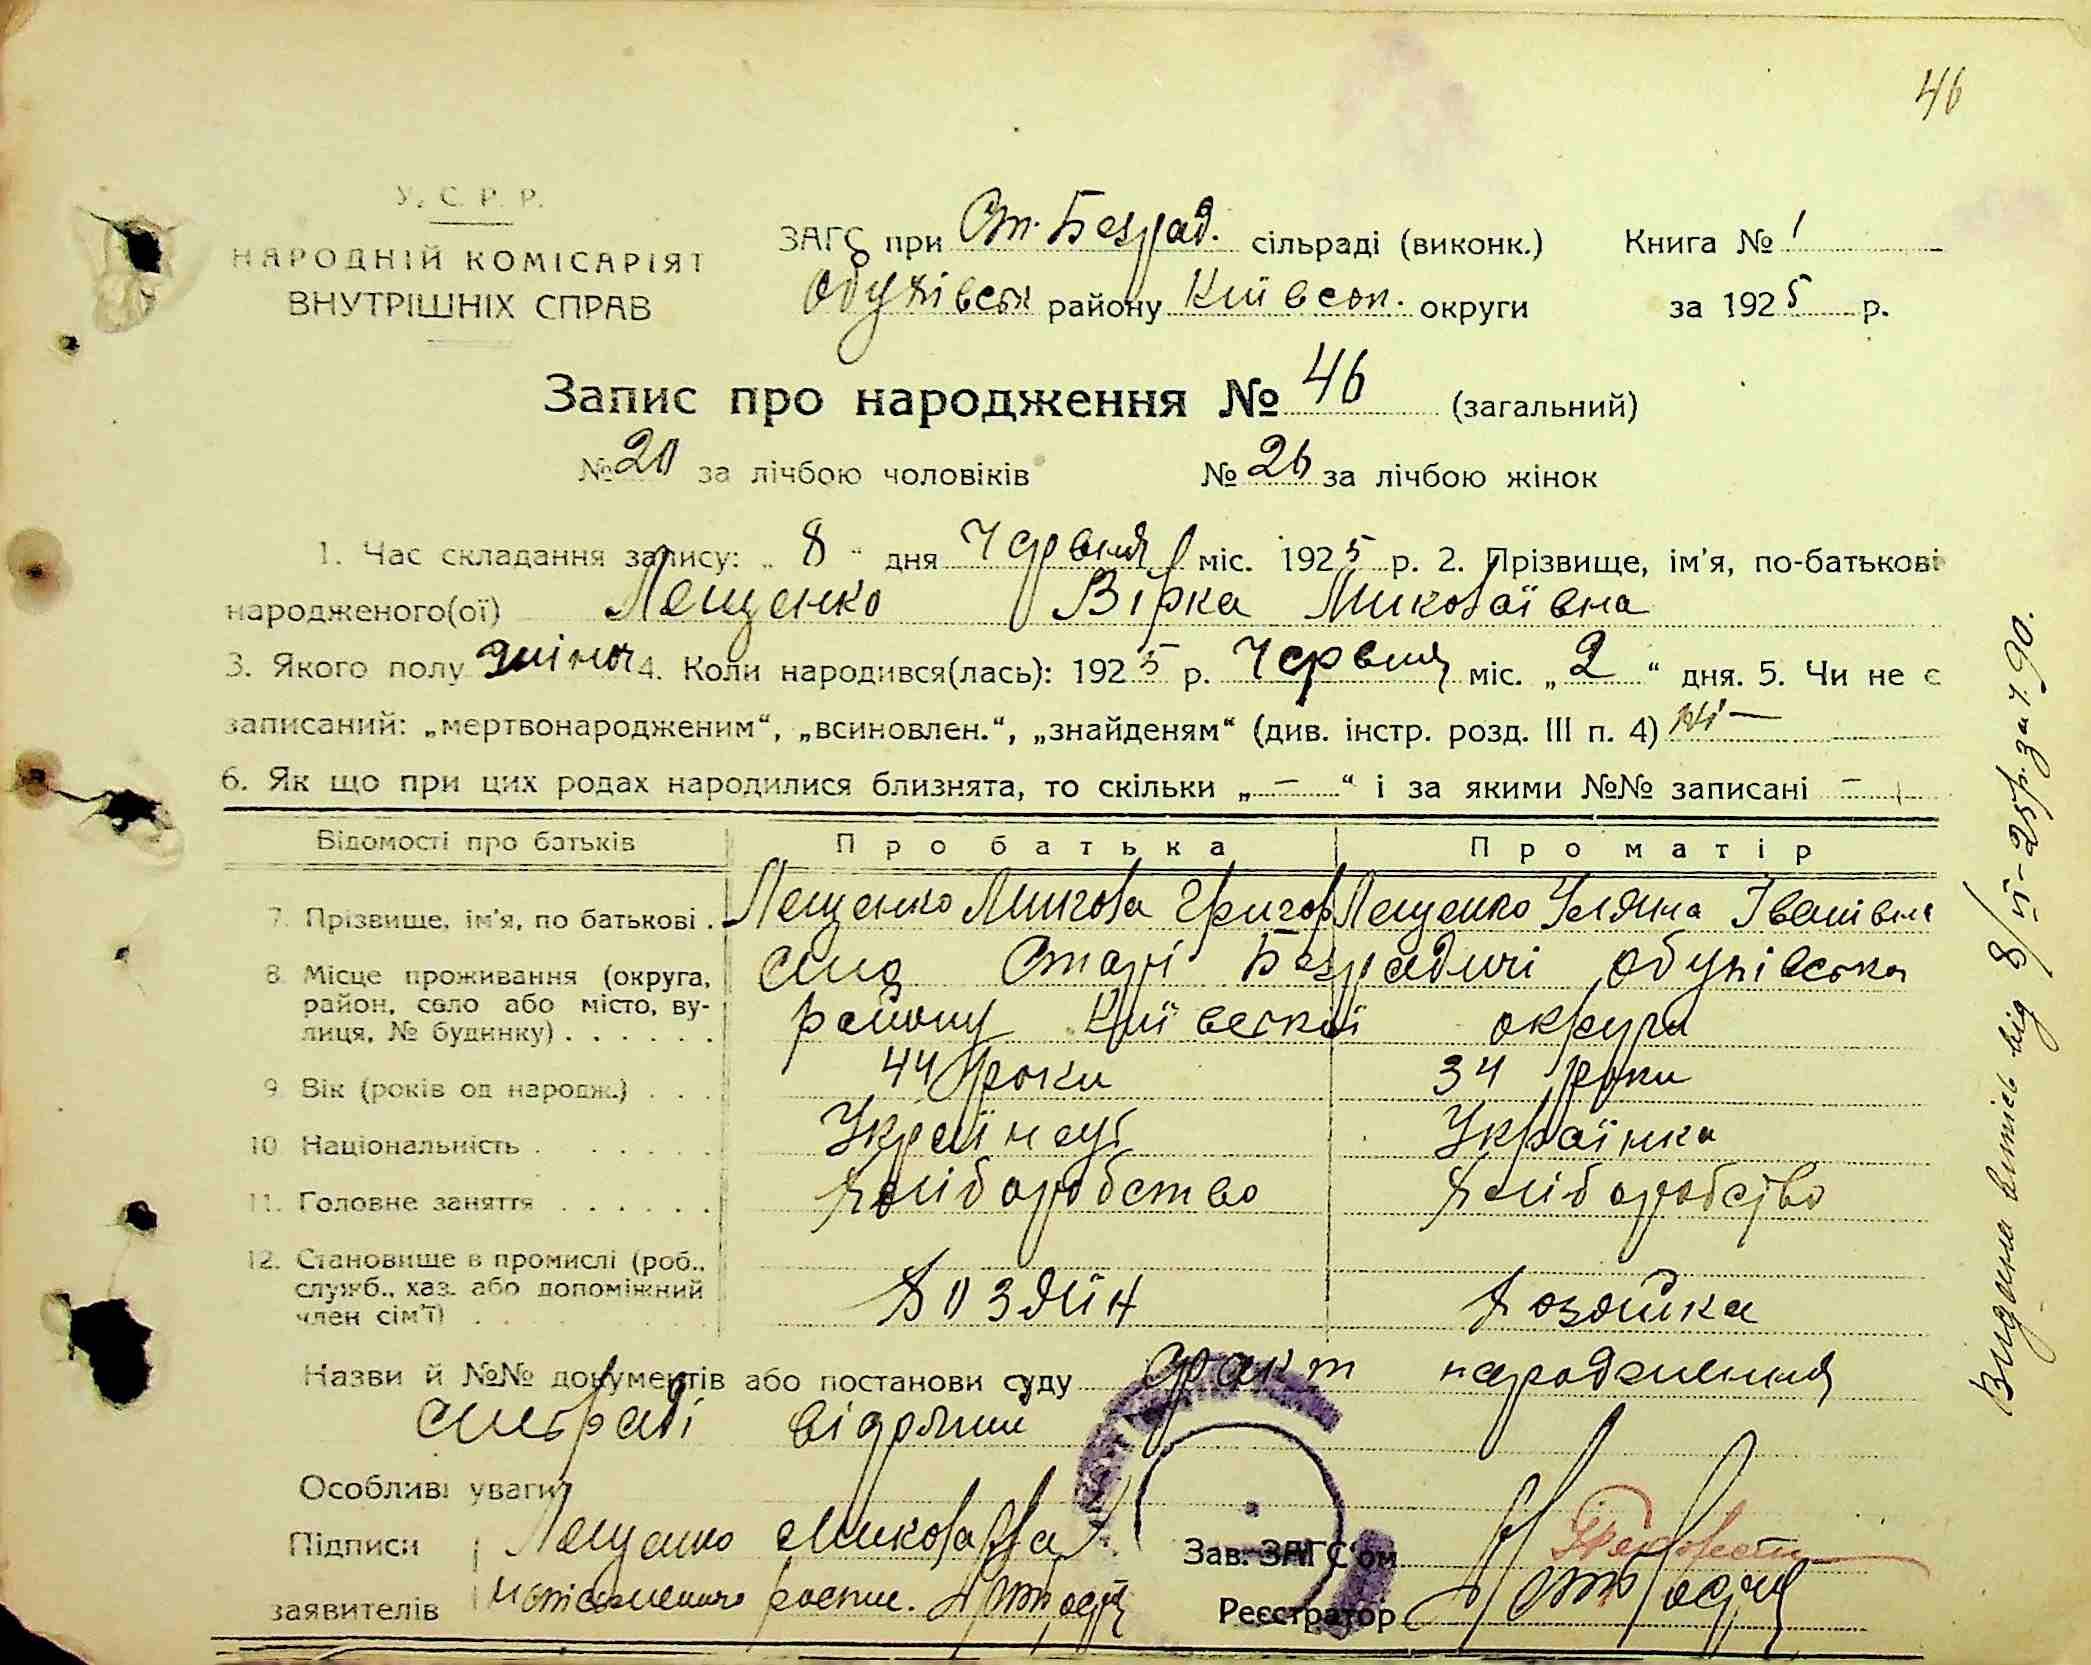 46
У. С. Р. Р.
НАРОДНІЙ КОМІСАРІЯТ
ВНУТРІШНІХ СПРАВ
ЗАГС при Ст. Безрад. сільраді (виконк.) Книга № 1
Обухівськ району Київськ. округи за 1925 р.
Запис про народження № 46 (загальний)
№ 20 за лічбою чоловіків № 26 за лічбою жінок
1. Час складання запису: „ 8 " дня Червня міс. 1925 р. 2. Прізвище, ім'я, по-батькові
народженого(ої) Лещенко Вірка Миколаївна
3. Якого полу жіноч 4. Коли народився(лась): 1925 р. Червня міс. „ 2 “ дня. 5. Чи не є
записаний: „мертвонародженим“, „всиновлен.“, „знайденям“ (див. інстр. розд. III п. 4) ні —
6. Як що при цих родах народилися близнята, то скільки „ — “ і за якими №№ записані —
Відомості про батьків Про батька Про матір
7. Прізвище, ім'я, по батькові . Лещенко Микола Григор Лещенко Уляна Іванівна
8. Місце проживання (округа, район, село або місто, вулиця, № будинку) . . . . . . село Старі Безрадичі Обухівська
району Київської округи
9. Вік (років од народж.) . . . 44 роки 34 роки
10. Національність . . . . . . . Українець Українка
11. Головне заняття . . . . . . Хліборобство Хліборобство
12. Становище в промислі (роб.. служб., хаз. або допоміжний член сім'ї) . . . . . . . Хозяїн Хозяйка
Назви й №№ документів або постанови суду факт народження
сільраді відомий
Особливі уваги
Підписи Лещенко Микола а Зав. ЗАГС'ом
заявителів неписьменного распис. Реєстратор
Видана випись від 8/VI-25 р. за ч. 90.